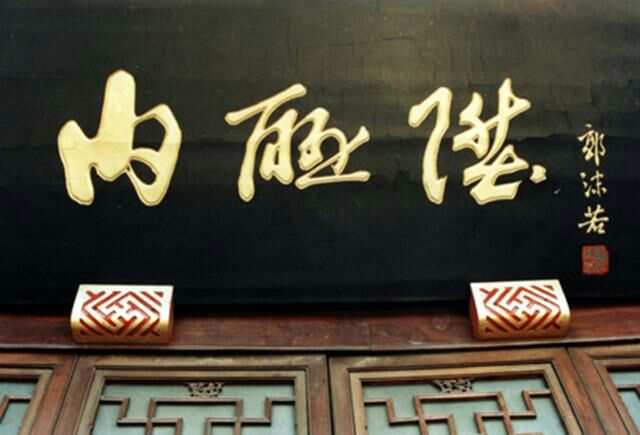 内联陞
郭沫若